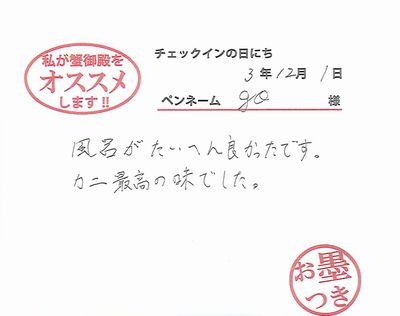 私が蟹御殿を
オススメ
します!!
チェックインの日にち
3年12月1日
ペンネーム go 様
風呂がたいへん良かったです。
カニ最高の味でした。
お墨
つき